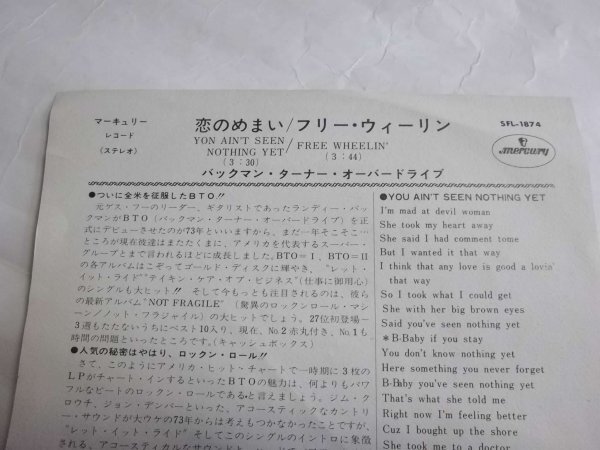 マーキュリー
レコード
(ステレオ)
恋のめまい/フリー・ウィーリン
YON AIN'T SEEN
NOTHING YET / FREE WHEELIN'
(3:30) (3:44)
バックマン・ターナー・オーバードライブ
SFL-1874
mercury
●ついに全米を征服したBTO!!
元ゲス・フーのリーダー、ギタリストであったランディー・バッ
クマンがBTO(バックマン・ターナー・オーバードライブ)を正
式にデビューさせたのが73年といいますから、まだ一年そこそこ…
ところが現在彼達はまたたくまに、アメリカを代表するスーパー・
グループとまで言われるほどに成長しました。BTO=I、BTO=II
の各アルバムはこぞってゴールド・ディスクに輝やき、"レット・
イット・ライド""テイキン・ケア・オブ・ビジネス"(仕事に御用心)
のシングルも大ヒット!! そして今もっとも注目されるのは、彼ら
の最新アルバム"NOT FRAGILE"(驚異のロックンロール・マシ
ーン/ノット・フラジャイル)の大ヒットでしょう。27位初登場—
3週もたたないうちにベスト10入り、現在、No.2赤丸付き、No.1も
時間の問題といったところです。(キャッシュボックス)
●人気の秘密はやはり、ロックン・ロール!!
さて、このようにアメリカ・ヒット・チャートで一時期に3枚の
LPがチャート・インするといったBTOの魅力は、何よりもパワ
フルなビートのロックン・ロールである。と言えましょう。ジム・ク
ロウチ、ジョン・デンバーといった、アコースティックなカントリ
ー・サウンドが大ウケの73年からは考えもつかなかったことですが、
"レット・イット・ライド"そしてこのシングルのイントロに象徴
される、アコースティカルなサウンドと
●YOU AIN'T SEEN NOTHING YET
I'm mad at devil woman
She took my heart away
She said I had comment tome
But I wanted it that way
I think that any love is good a lovin'
that way
So I took what I could get
She with her big brown eyes
Said you've seen nothing yet
*B-Baby if you stay
You don't know nothing yet
Here something you never forget
B-B-Baby you've seen nothing yet
That's what she told me
Right now I'm feeling better
Cuz I bought up the shore
She took me to a doctor